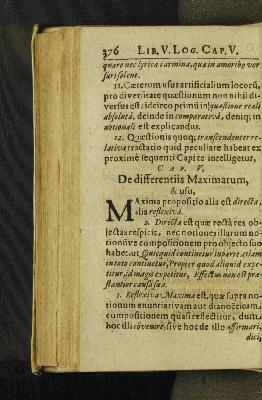 376 LIB. V. LOG. CAP. V.
quare nec lyrica carmina, quæ in amoribꝰ ver
sari solent.
11. Cæterum usus artificialium locorũ,
pro diversitate quæstionum non nihil di-
versus est: idcirco primũ in quæstione reali
absolutâ, deinde in comparativâ, deniq; in
notionali est explicandus.
12. Quæstionis quoq; transcendenter re-
lativæ tractatio quid peculiare habeat ex
proximè sequenti Capite intelligetur,
CAP. V,
De differentiis Maximarum,
& usu,
MAxima propositio alia est directa,
alia reflexivâ.
2. Directa est quæ rectà res ob-
jectas respicit, nec notiones illarum no-
tionũve compositionem pro objecto suo
habet: ut Quicquid continetur in parte, etiam
in toto continetur, Propter quod aliquid expe-
titur, id magis expetitur, Effectus non est præ-
stantior causâ suâ.
3. Reflexiva Maxima est, quæ supra no-
tionum enuntiativam aut dianoëticam
compositionem quasi reflectitur, dum
hoc illi cõvenire, sive hoc de illo affirmari,
dici,